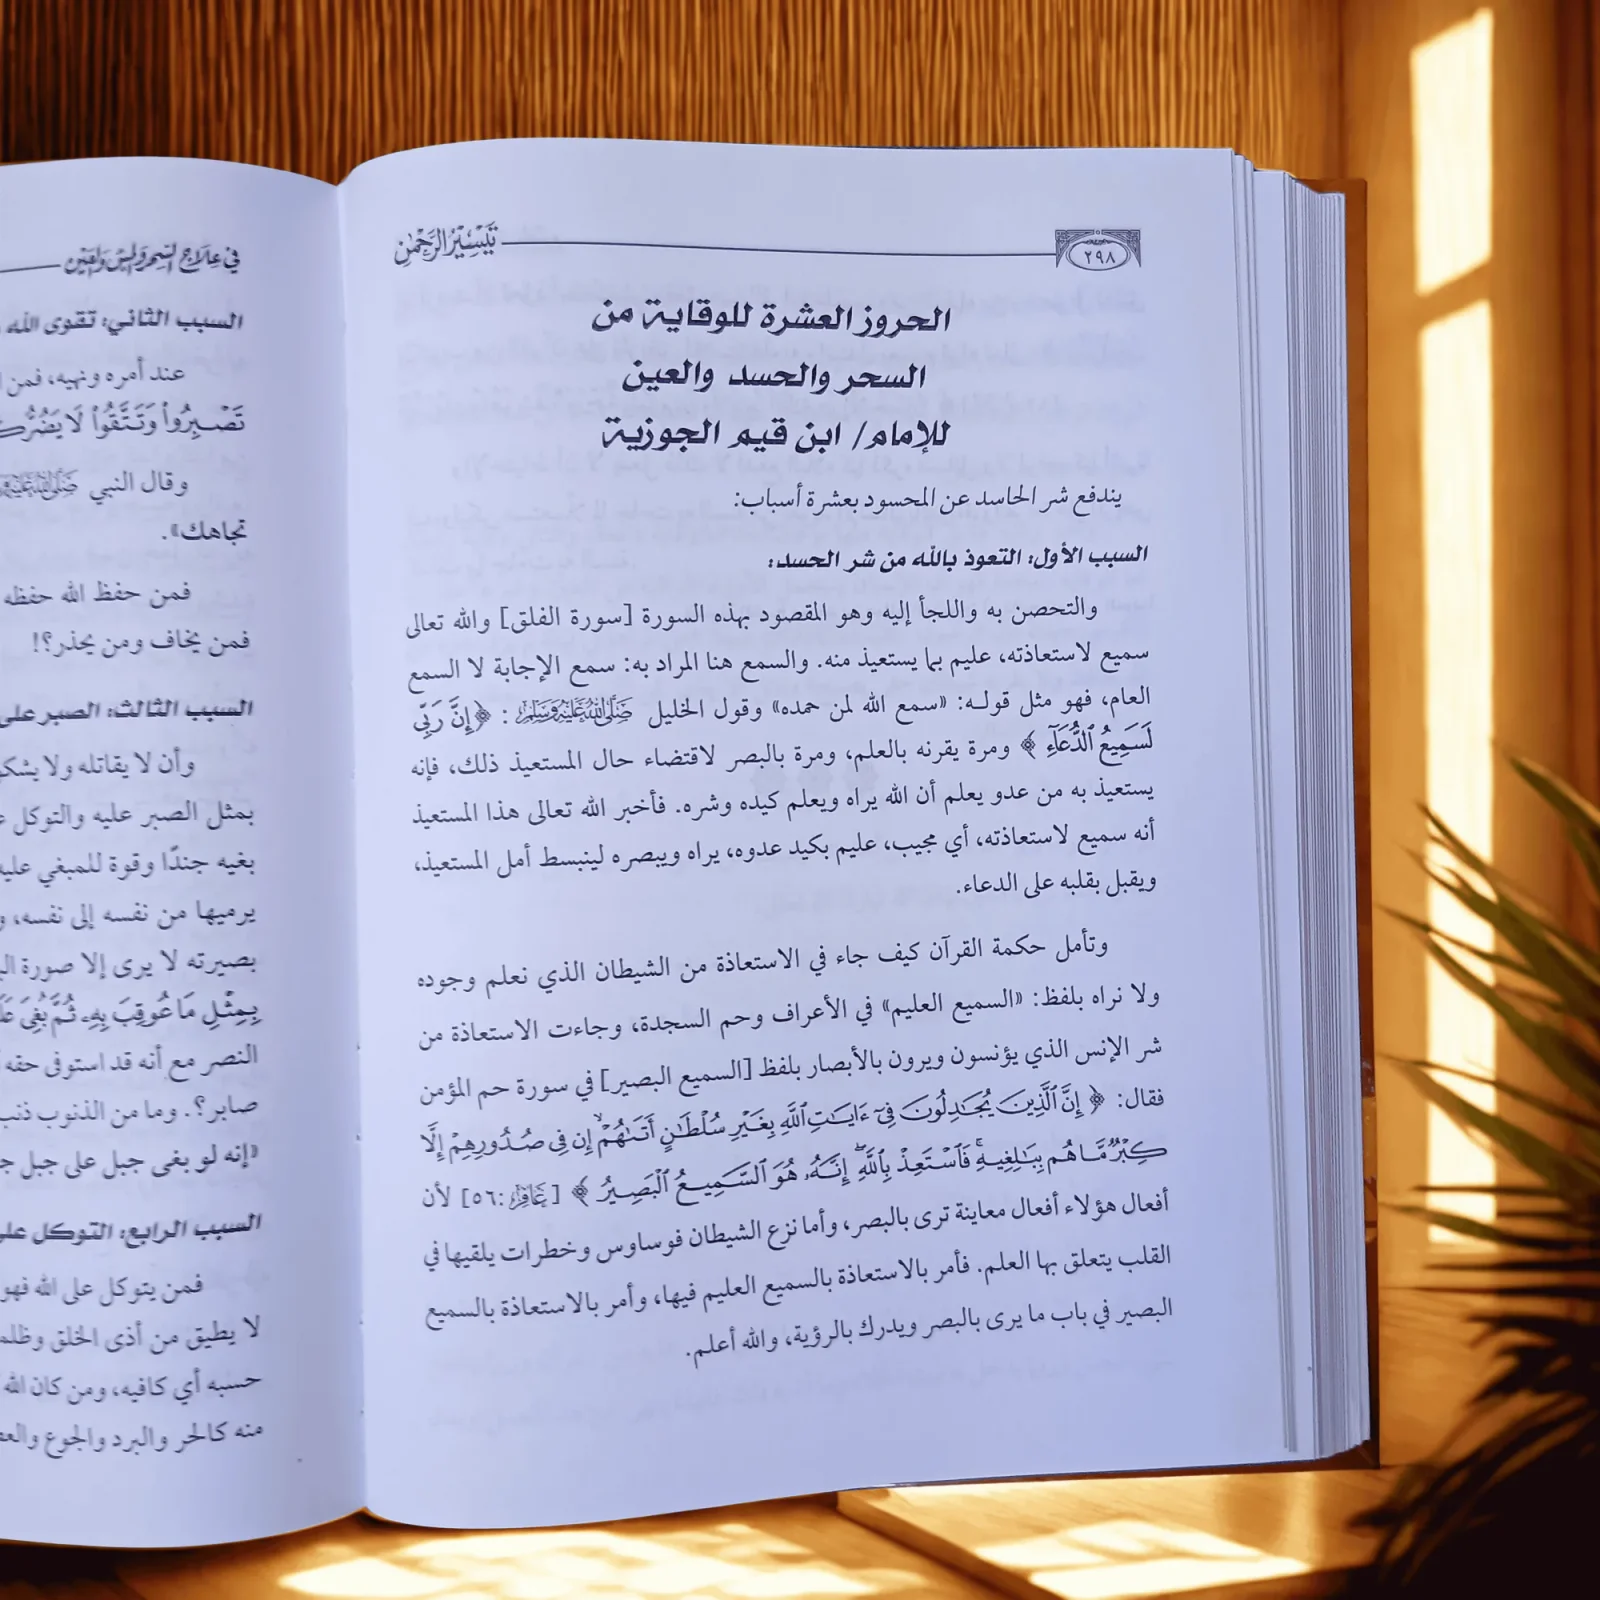 تيسير الرحمن
٢٩٨
الحروز العشرة للوقاية من
السحر والحسد والعين
للإمام/ ابن قيم الجوزية
يندفع شر الحاسد عن المحسود بعشرة أسباب:
السبب الأول: التعوذ بالله من شر الحسد:
والتحصن به واللجأ إليه وهو المقصود بهذه السورة [سورة الفلق] والله تعالى
سميع لاستعاذته، عليم بما يستعيذ منه. والسمع هنا المراد به: سمع الإجابة لا السمع
العام، فهو مثل قولـه: «سمع الله لمن حمده» وقول الخليل ﷺ: ﴿إِنَّ رَبِّي
لَسَمِيعُ ٱلدُّعَآءِ﴾ ومرة يقرنه بالعلم، ومرة بالبصر لاقتضاء حال المستعيذ ذلك، فإنه
يستعيذ به من عدو يعلم أن الله يراه ويعلم كيده وشره. فأخبر الله تعالى هذا المستعيذ
أنه سميع لاستعاذته، أي مجيب، عليم بكيد عدوه، يراه ويبصره لينبسط أمل المستعيذ،
ويقبل بقلبه على الدعاء.
وتأمل حكمة القرآن كيف جاء في الاستعاذة من الشيطان الذي نعلم وجوده
ولا نراه بلفظ: «السميع العليم» في الأعراف وحم السجدة، وجاءت الاستعاذة من
شر الإنس الذي يؤنسون ويرون بالأبصار بلفظ [السميع البصير] في سورة حم المؤمن
فقال: ﴿إِنَّ ٱلَّذِينَ يُجَٰدِلُونَ فِىٓ ءَايَٰتِ ٱللَّهِ بِغَيْرِ سُلْطَٰنٍ أَتَىٰهُمْ ۙ إِن فِى صُدُورِهِمْ إِلَّا
كِبْرٌ مَّا هُم بِبَٰلِغِيهِ ۚ فَٱسْتَعِذْ بِٱللَّهِ ۖ إِنَّهُۥ هُوَ ٱلسَّمِيعُ ٱلْبَصِيرُ﴾ [غافر: ٥٦] لأن
أفعال هؤلاء أفعال معاينة ترى بالبصر، وأما نزع الشيطان فوساوس وخطرات يلقيها في
القلب يتعلق بها العلم. فأمر بالاستعاذة بالسميع العليم فيها، وأمر بالاستعاذة بالسميع
البصير في باب ما يرى بالبصر ويدرك بالرؤية، والله أعلم.
في علاج السحر والمس والعين
السبب الثاني: تقوى الله
عند أمره ونهيه، فمن
تَصْبِرُوا۟ وَتَتَّقُوا۟ لَا يَضُرُّكُ
وقال النبي ﷺ
تجاهك».
فمن حفظ الله حفظه
فمن يخاف ومن يحذر؟!
السبب الثالث: الصبر على
وأن لا يقاتله ولا يشكو
بمثل الصبر عليه والتوكل
بغيه جندًا وقوة للمبغي عليه
يرميها من نفسه إلى نفسه،
بصيرته لا يرى إلا صورة
بِمِثْلِ مَا عُوقِبَ بِهِۦ ثُمَّ بُغِىَ
النصر مع أنه قد استوفى حقه
صابر؟. وما من الذنوب ذنب
«إنه لو بغى جبل على جبل
السبب الرابع: التوكل على
فمن يتوكل على الله فهو
لا يطيق من أذى الخلق
حسبه أي كافيه، ومن كان الله
منه كالحر والبرد والجوع